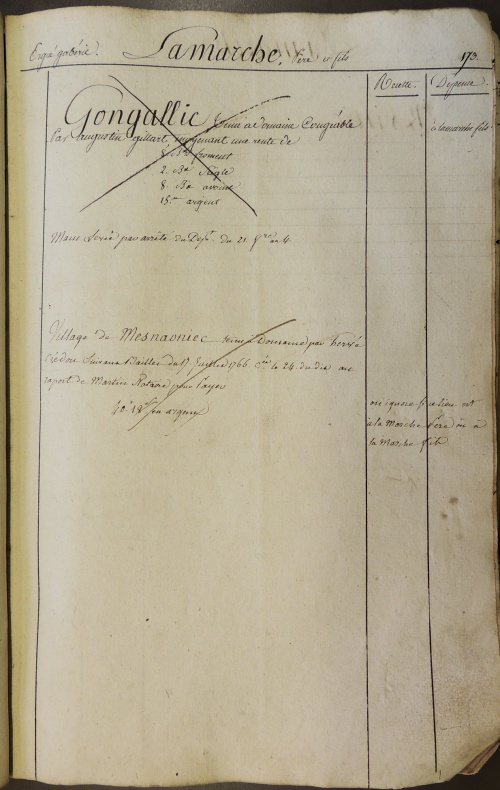 Ergué gabéric. Lamarche, Père et fils 173.
Recette. Dépense.
Gongallic tenu a Domaine Congéable
Par augustin gillart, moyenant une rente de
8. Bx froment
2. Bx Seigle
8. Bx avoine
15.tt argent
à Lamarche fils
Main Levée par arrêté du Dept. du 21. an 4
Village de Mesnaoniec tenu à Domaine par hervé
Crédou Suivant Bailler du 17 1766. le 24. du dit au
raport de Martin Notaire pour Payer
40.tt 18.s en argent
on ignore si cetien est
à la Marche Père ou à
la Marche fils